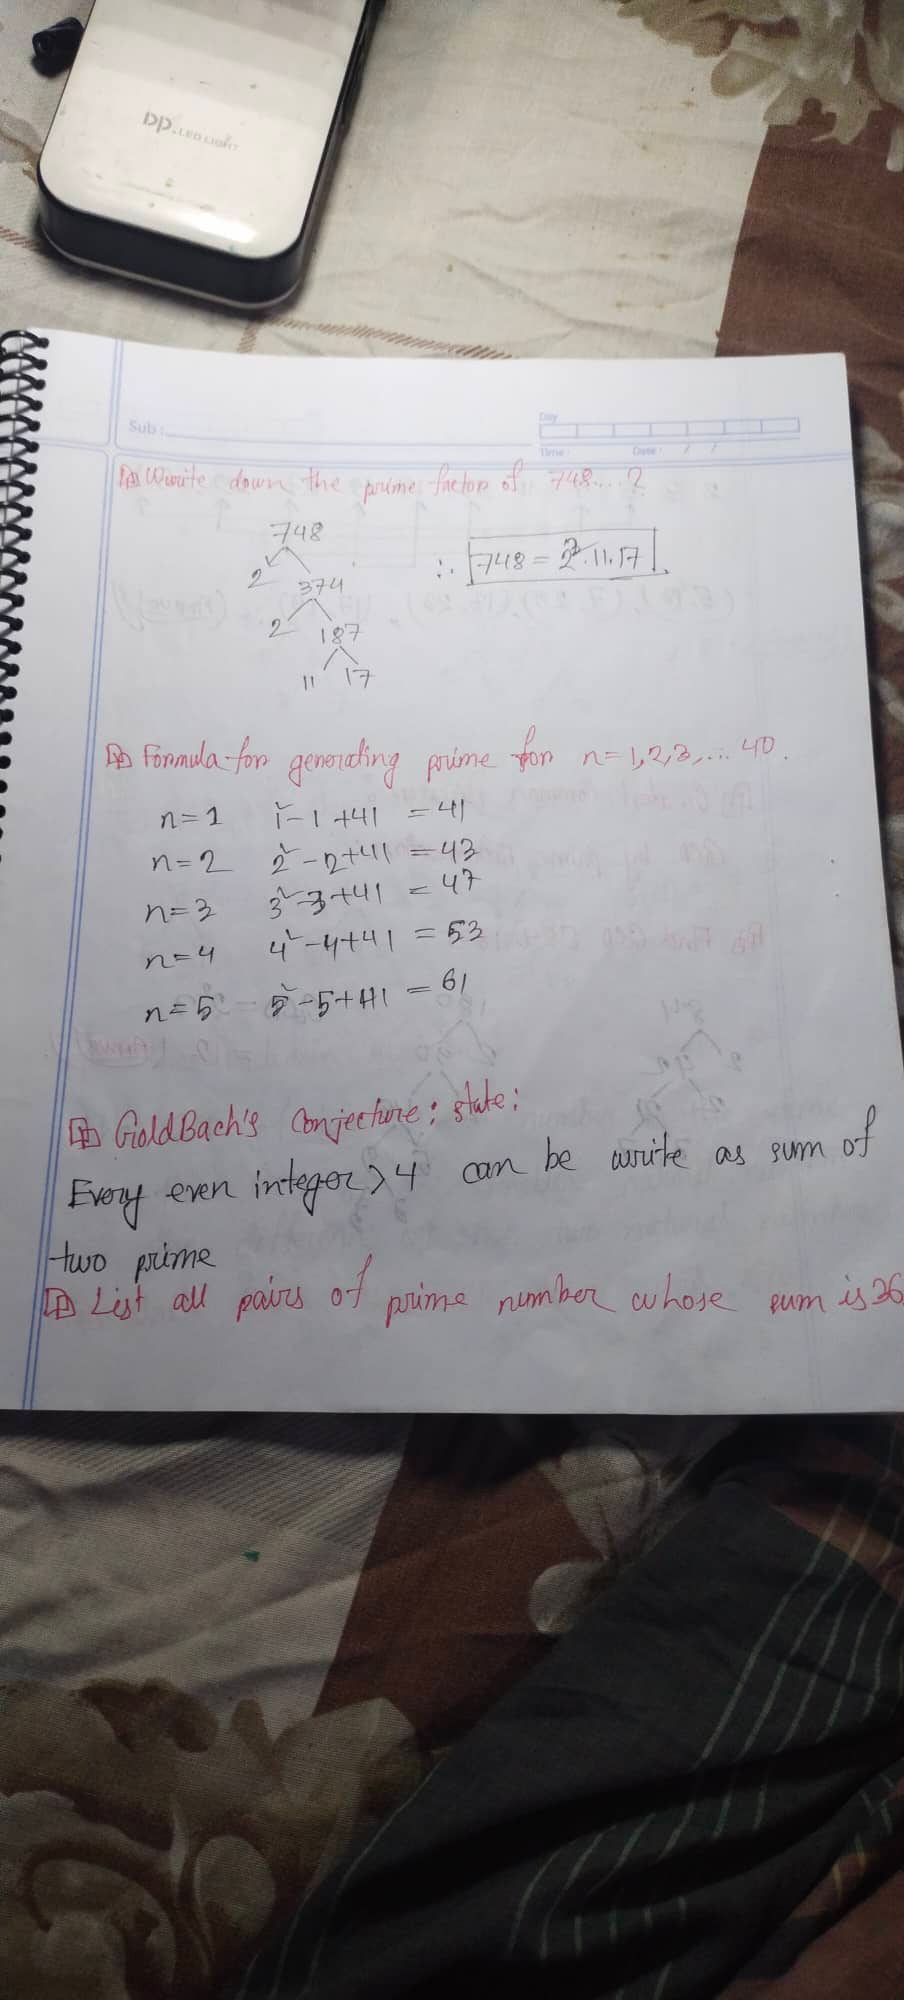 DP. LED LIGHT
Sub :
Day
Time : Date : / /
Write down the prime factor of 748....?
748
2 374
2 187
11 17
∴ 748 = 2².11.17
Formula for generating prime for n=1,2,3,... 40.
n=1 1²-1+41 =41
n=2 2²-2+41 =43
n=3 3²-3+41 =47
n=4 4²-4+41 =53
n=5 5²-5+41 =61
GoldBach's Conjecture: state:
Every even integer>4 can be write as sum of
two prime
List all pairs of prime number whose sum is 26